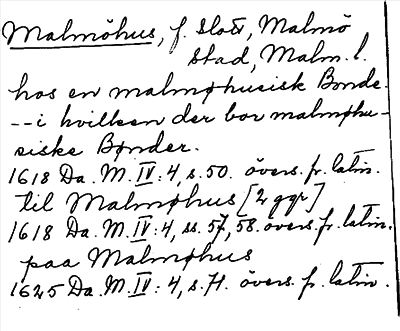 Malmöhus, f. slott, Malmö
stad, Malm. l.
hos en malmøhusisk Bonde
-- i hvilken der bor malmøhu-
siske Bønder.
1618 Da. M. IV: 4, s. 50. övers. fr. latin.
til Malmøhus [2 ggr]
1618 Da. M. IV: 4, ss. 57, 58. övers. fr. latin.
paa Malmøhus
1625 Da. M. IV: 4, s. 71. övers. fr. latin.